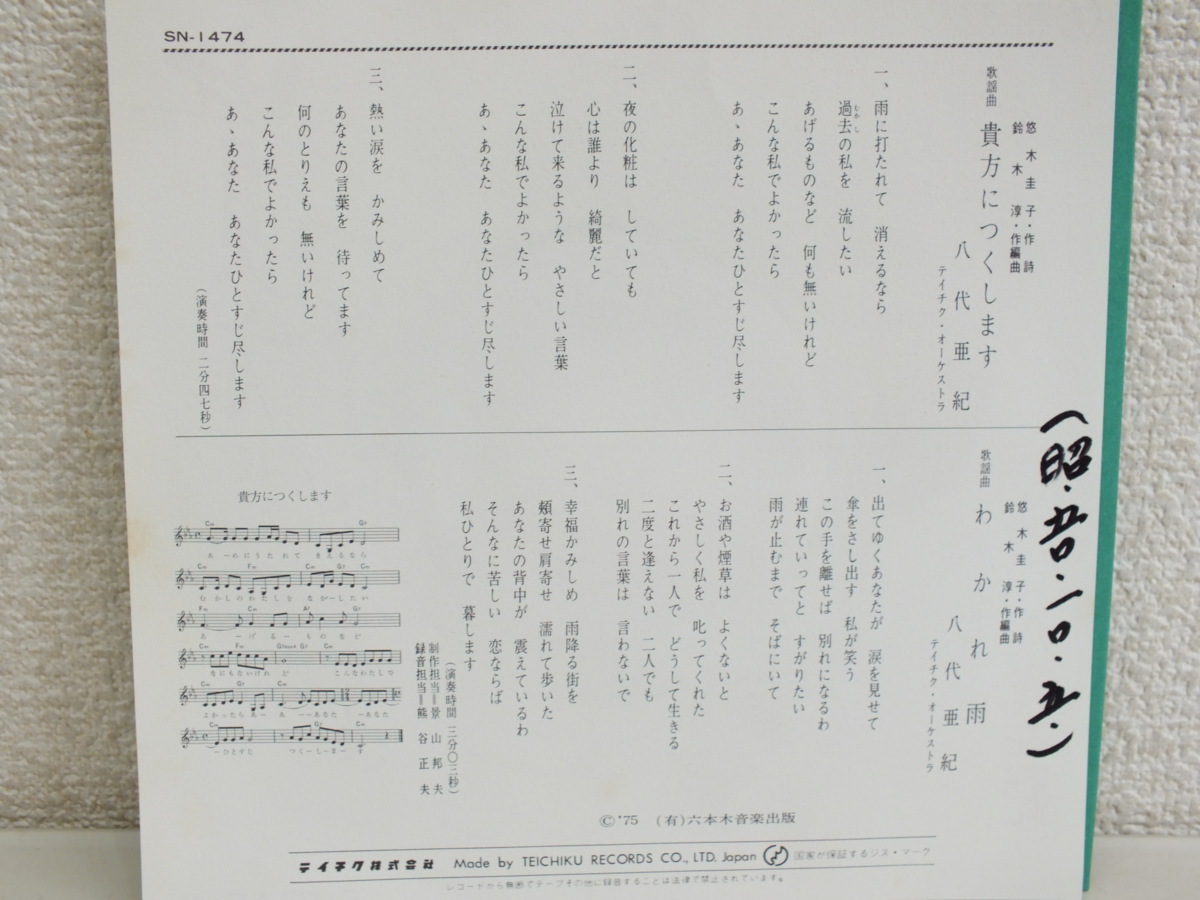 SN-1474
歌謡曲
貴方につくします
悠木圭子・作詩
鈴木淳・作編曲
八代亜紀
テイチク・オーケストラ
一、雨に打たれて 消えるなら
過去の私を 流したい
むかし
あげるものなど 何も無いけれど
こんな私でよかったら
あゝあなた あなたひとすじ尽します
二、夜の化粧は していても
心は誰より 綺麗だと
泣けて来るような やさしい言葉
こんな私でよかったら
あゝあなた あなたひとすじ尽します
三、熱い涙を かみしめて
あなたの言葉を 待ってます
何のとりえも 無いけれど
こんな私でよかったら
あゝあなた あなたひとすじ尽します
(演奏時間 二分四七秒)
歌謡曲
わかれ雨
悠木圭子・作詩
鈴木淳・作編曲
八代亜紀
テイチク・オーケストラ
一、出てゆくあなたが 涙を見せて
傘をさし出す 私が笑う
この手を離せば 別れになるわ
連れていってと すがりたい
雨が止むまで そばにいて
二、お酒や煙草は よくないと
やさしく私を 叱ってくれた
これから一人で どうして生きる
二度と逢えない 二人でも
別れの言葉は 言わないで
三、幸福かみしめ 雨降る街を
頬寄せ肩寄せ 濡れて歩いた
あなたの背中が 震えているわ
そんなに苦しい 恋ならば
私ひとりで 暮します
(演奏時間 三分〇三秒)
制作担当=景山邦夫
録音担当=熊谷正夫
貴方につくします
Cm G7
あーめにうたれて きえるなら
Cm Fm Cm G7 Cm
むかしのわたしを ながーしたい
Fm Cm A♭ G7
あーげるーものなど
なにもないけれど こんなわたしで
よかったらあー あーーあなた ーあなた
ーひとすじ つくーしーまーす
(昭.五〇.一〇.五.)
©'75 (有)六本木音楽出版
テイチク株式会社 Made by TEICHIKU RECORDS CO., LTD. Japan 国家が保証するジス・マーク
レコードから無断でテープその他に録音することは法律で禁止されています。